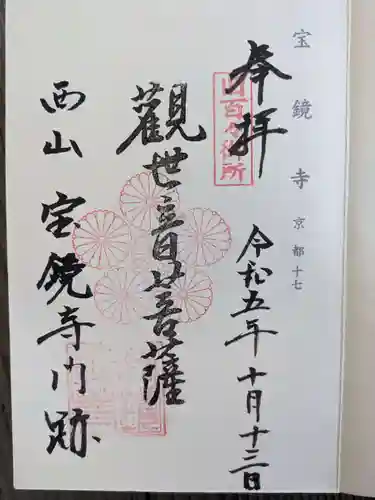 宝鏡寺 京都十七
奉拝
百々御所
令和五年十月十三日
觀世音菩薩
西山 宝鏡寺門跡